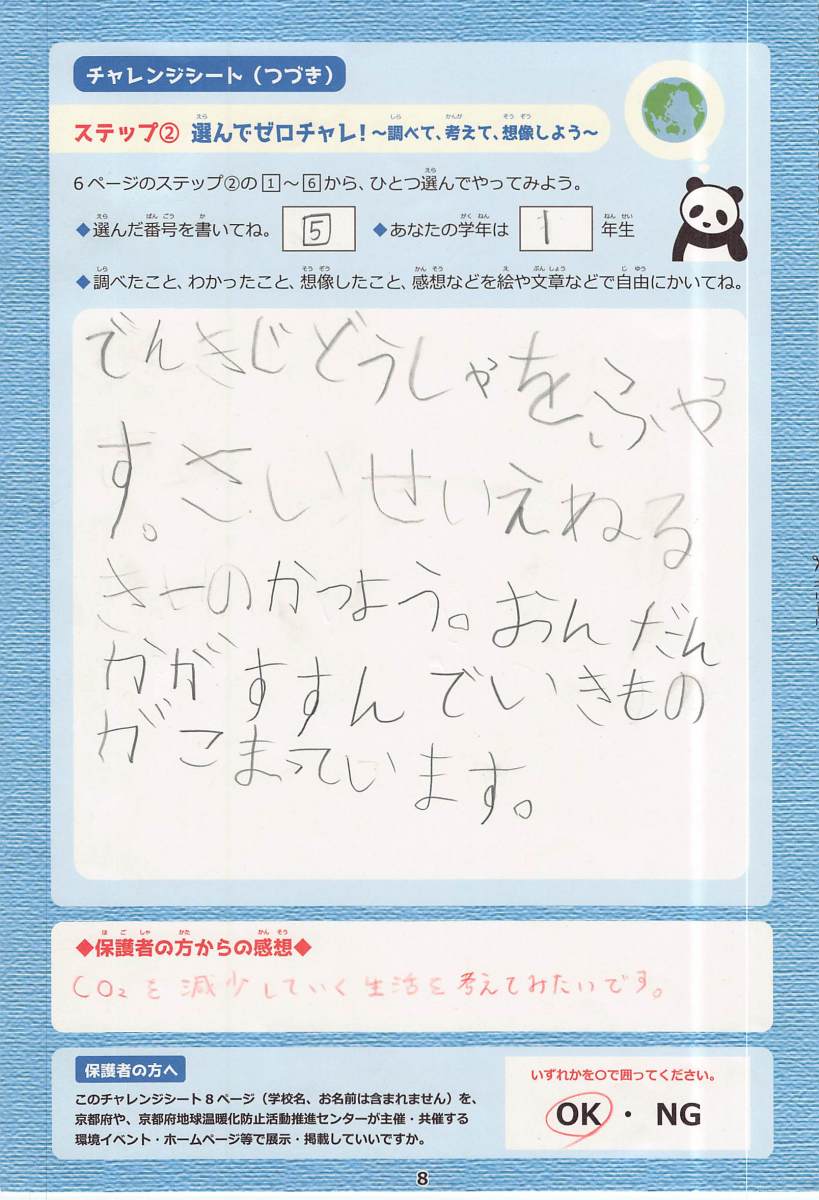 チャレンジシート（つづき）
ステップ② 選んでゼロチャレ！～調べて、考えて、想像しよう～
6ページのステップ②の1～6から、ひとつ選んでやってみよう。
◆選んだ番号を書いてね。 5 ◆あなたの学年は 1 年生
◆調べたこと、わかったこと、想像したこと、感想などを絵や文章などで自由にかいてね。
でんきじどうしゃをふや
す。さいせいえねる
きーのかつよう。おんだん
かがすすんでいきもの
がこまっています。
◆保護者の方からの感想◆
CO₂を減少していく生活を考えてみたいです。
保護者の方へ
このチャレンジシート8ページ（学校名、お名前は含まれません）を、
京都府や、京都府地球温暖化防止活動推進センターが主催・共催する
環境イベント・ホームページ等で展示・掲載していいですか。
いずれかを〇で囲ってください。
OK ・ NG
8